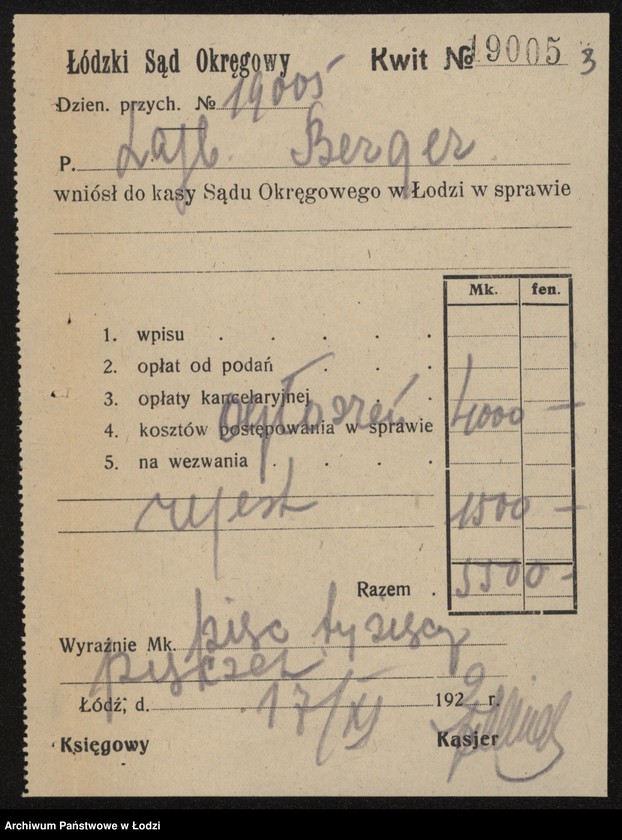 Łódzki Sąd Okręgowy Kwit № 19005 3
Dzien. przych. № 19005
P. Lajb. Berger
wniósł do kasy Sądu Okręgowego w Łodzi w sprawie
Mk. fen.
1. wpisu . . . . .
2. opłat od podań . . .
3. opłaty kancelaryjnej . .
ogłoszeń 4000 —
4. kosztów postępowania w sprawie
5. na wezwania . . . .
rejest 1500 —
Razem . 5500 -
Wyraźnie Mk. pięc tysięcy
pięćset
Łódź, d. 17/XI 1922 r.
Księgowy Kasjer
Archiwum Państwowe w Łodzi